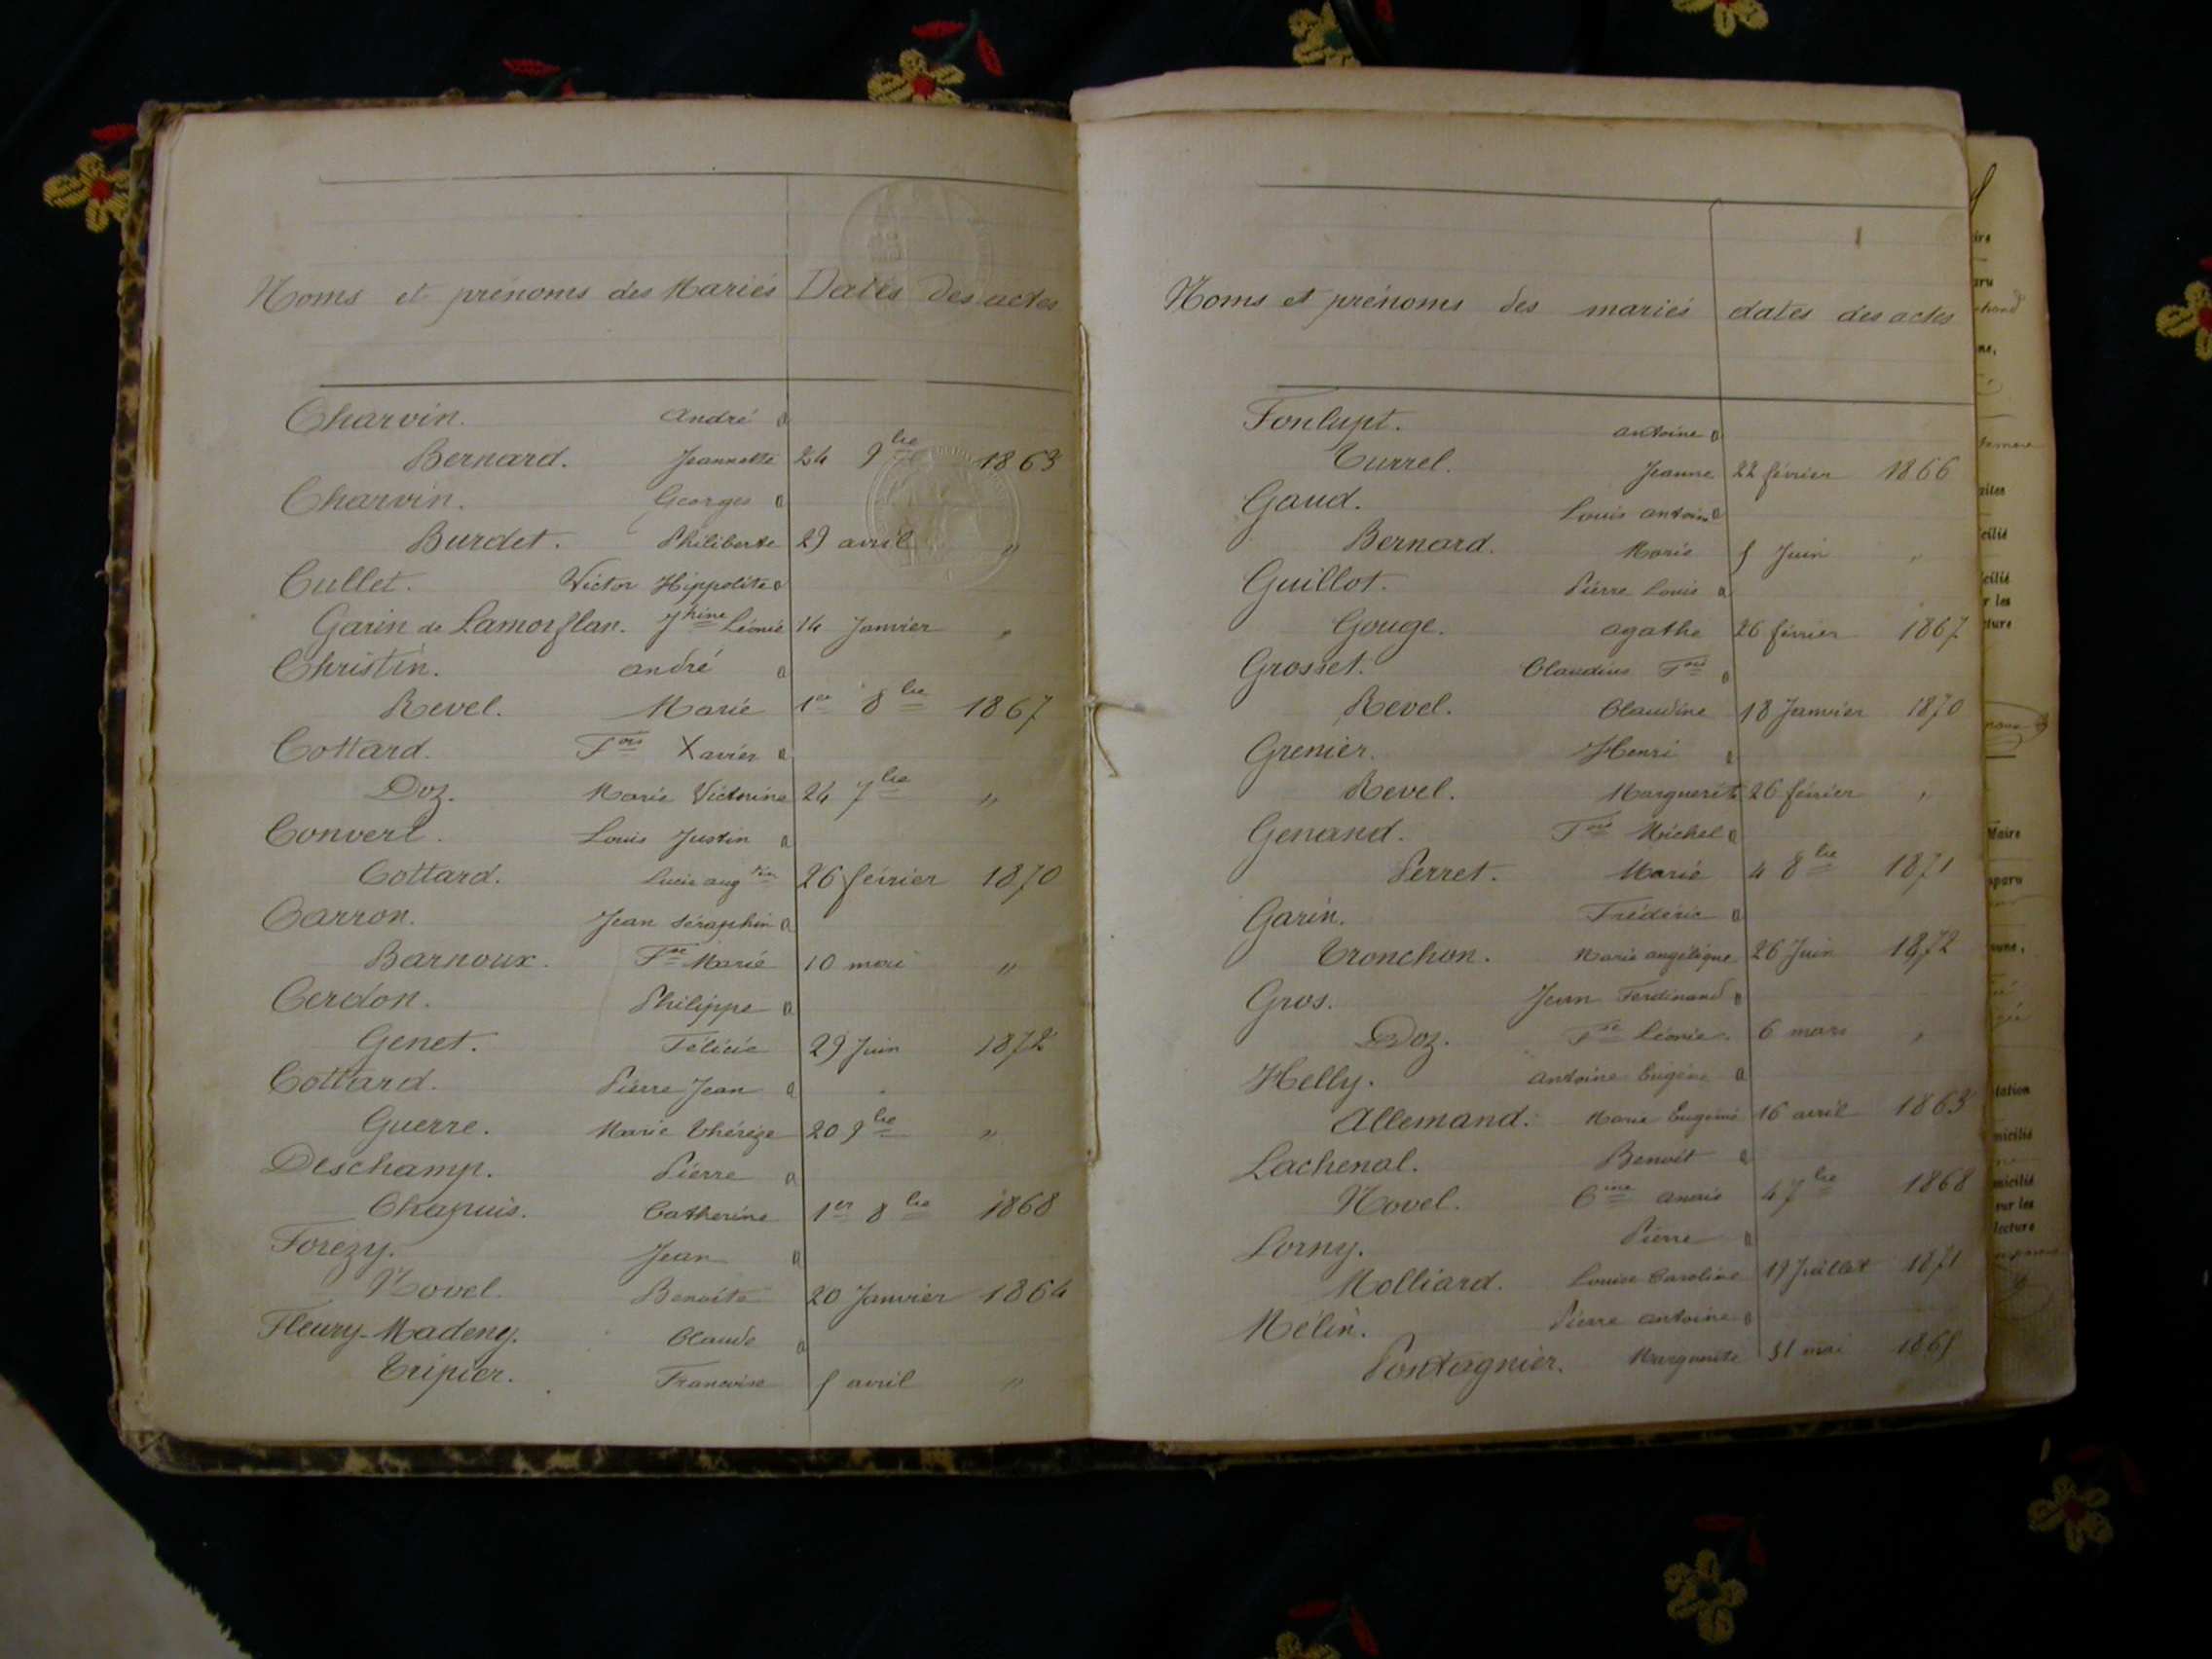 Noms et prénoms des Mariés Dates des actes
Charvin. André à
Bernard. Jeannette 24 9bre 1863
Charvin. Georges à
Burdet. Philiberte 29 avril "
Cullet. Victor Hippolite à
Garin de Lamorflan. Jhine Léonie 14 Janvier "
Christin. andré à
Revel. Marie 1er 8bre 1867
Cottard. Fois Xavier à
Doz. Marie Victorine 24 7bre "
Convert. Louis Justin à
Cottard. Lucie augtin 26 février 1870
Carron. Jean Séraphin à
Barnoux. Fse Marie 10 mai "
Cerdon. Philippe à
Genet. Félicie 29 Juin 1872
Cottard. Pierre Jean à
Guerre. Marie Thérèze 20 9bre "
Deschamp. Pierre à
Chapuis. Catherine 1er 8bre 1868
Forézy. Jean à
Novel. Benoite 20 Janvier 1864
Fleury-Madeny. Claude à
Tripier. Francoise 5 avril "
Noms et prénoms des mariés dates des actes
Fonlupt. antoine à
Turrel. Jeanne 22 février 1866
Gaud. Louis antoine à
Bernard. Marie 5 Juin "
Guillot. Pierre Louis à
Gouge. agathe 26 février 1867
Grosset. Claudius Fois à
Revel. Claudine 18 Janvier 1870
Grenier. Henri à
Revel. Marguerite 26 février "
Genand. Fois Michel à
Perret. Marie 4 8bre 1871
Garin. Frédéric à
Tronchon. Marie angélique 26 Juin 1872
Gros. Jean Ferdinand à
Doz. Fse Léonie. 6 mars "
Helly. antoine Eugène à
Allemand. Marie Eugénie 16 avril 1863
Lachenal. Benoit à
Novel. Cine anaïs 4 7bre 1868
Lorny. Pierre à
Molliard. Louise Caroline 19 Juillet 1871
Mélin. Pierre antoine à
Pontagnier. Marguerite 31 mai 1865